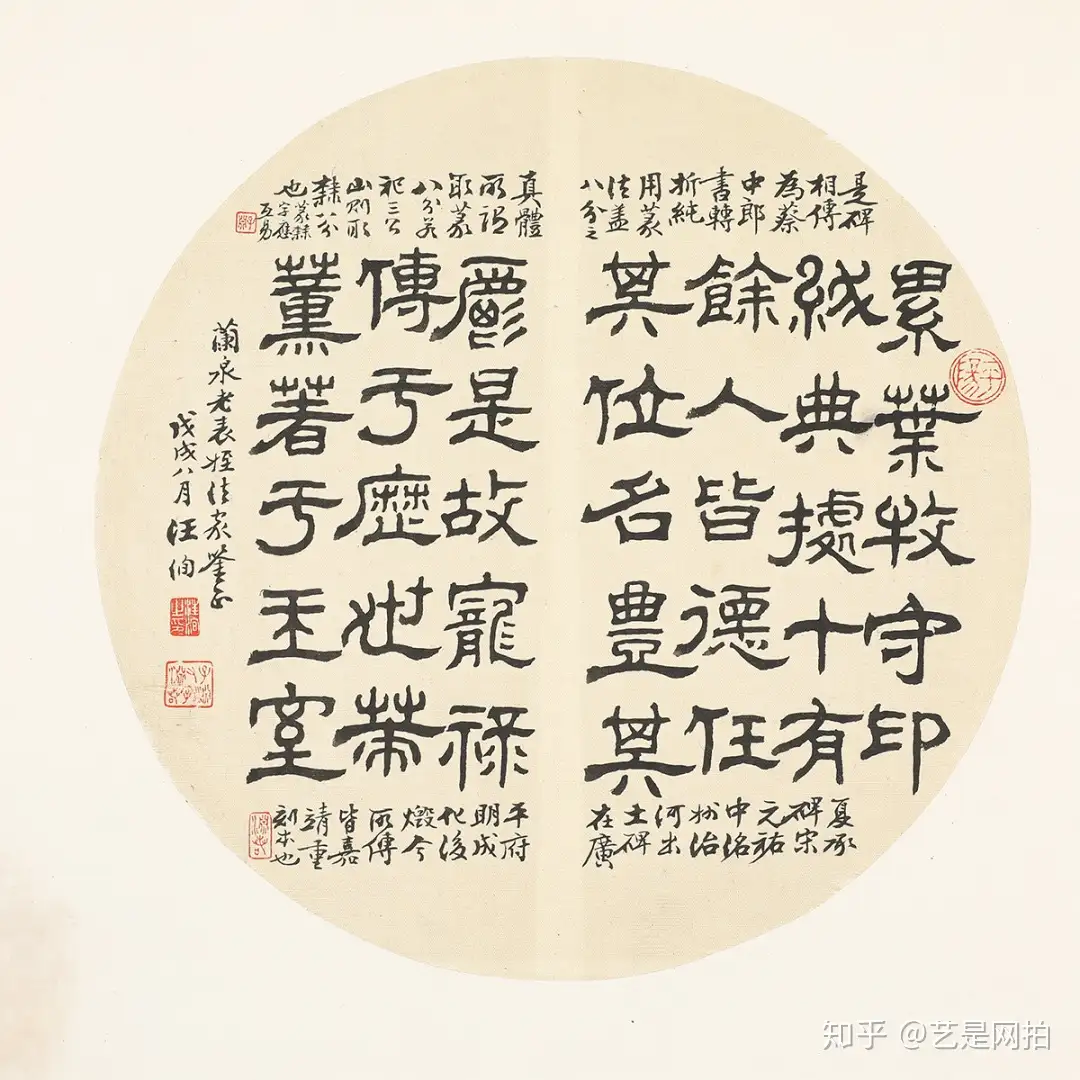 是碑
相傳
為蔡
中郎
書轉
折純
用篆
法蓋
八分之
真體
所謂
取篆
八分若
祀三公
山則所
隸八分
也篆隸字應
互易
累葉牧守印
紱典據十有
餘人皆德任
其位名豐其
爵是故寵祿
傳于歷世策
薰著于王室
夏承
碑宋
元祐
中洺
州治
河出
土碑
在廣
平府
明成
化後
燬今
所傳
皆嘉
靖重
刻本也
蘭泉老表姪法家鑒正
戊戌八月汪洵
汪洵之印
知乎 @艺是网拍